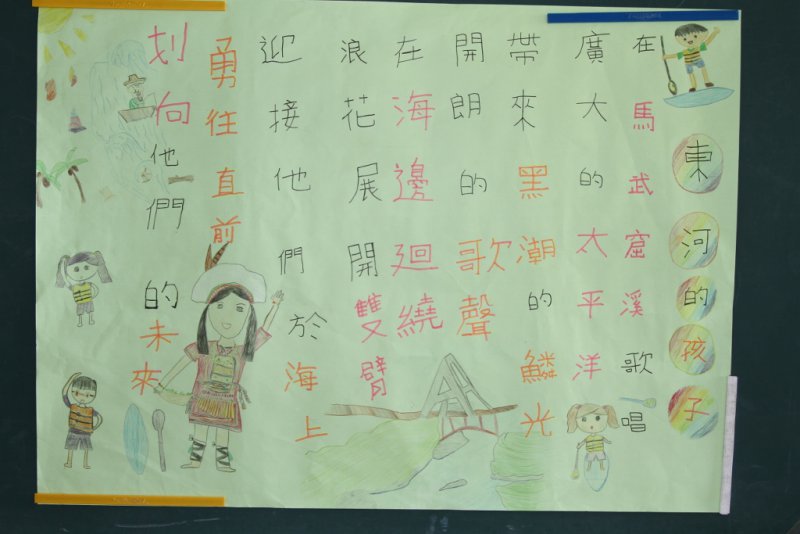 東河的孩子
在馬武窟溪歌唱
廣大的太平洋
帶來黑潮的鱗光
開朗的歌聲
在海邊迴繞
浪花展開雙臂
迎接他們於海上
勇往直前
划向他們的未來